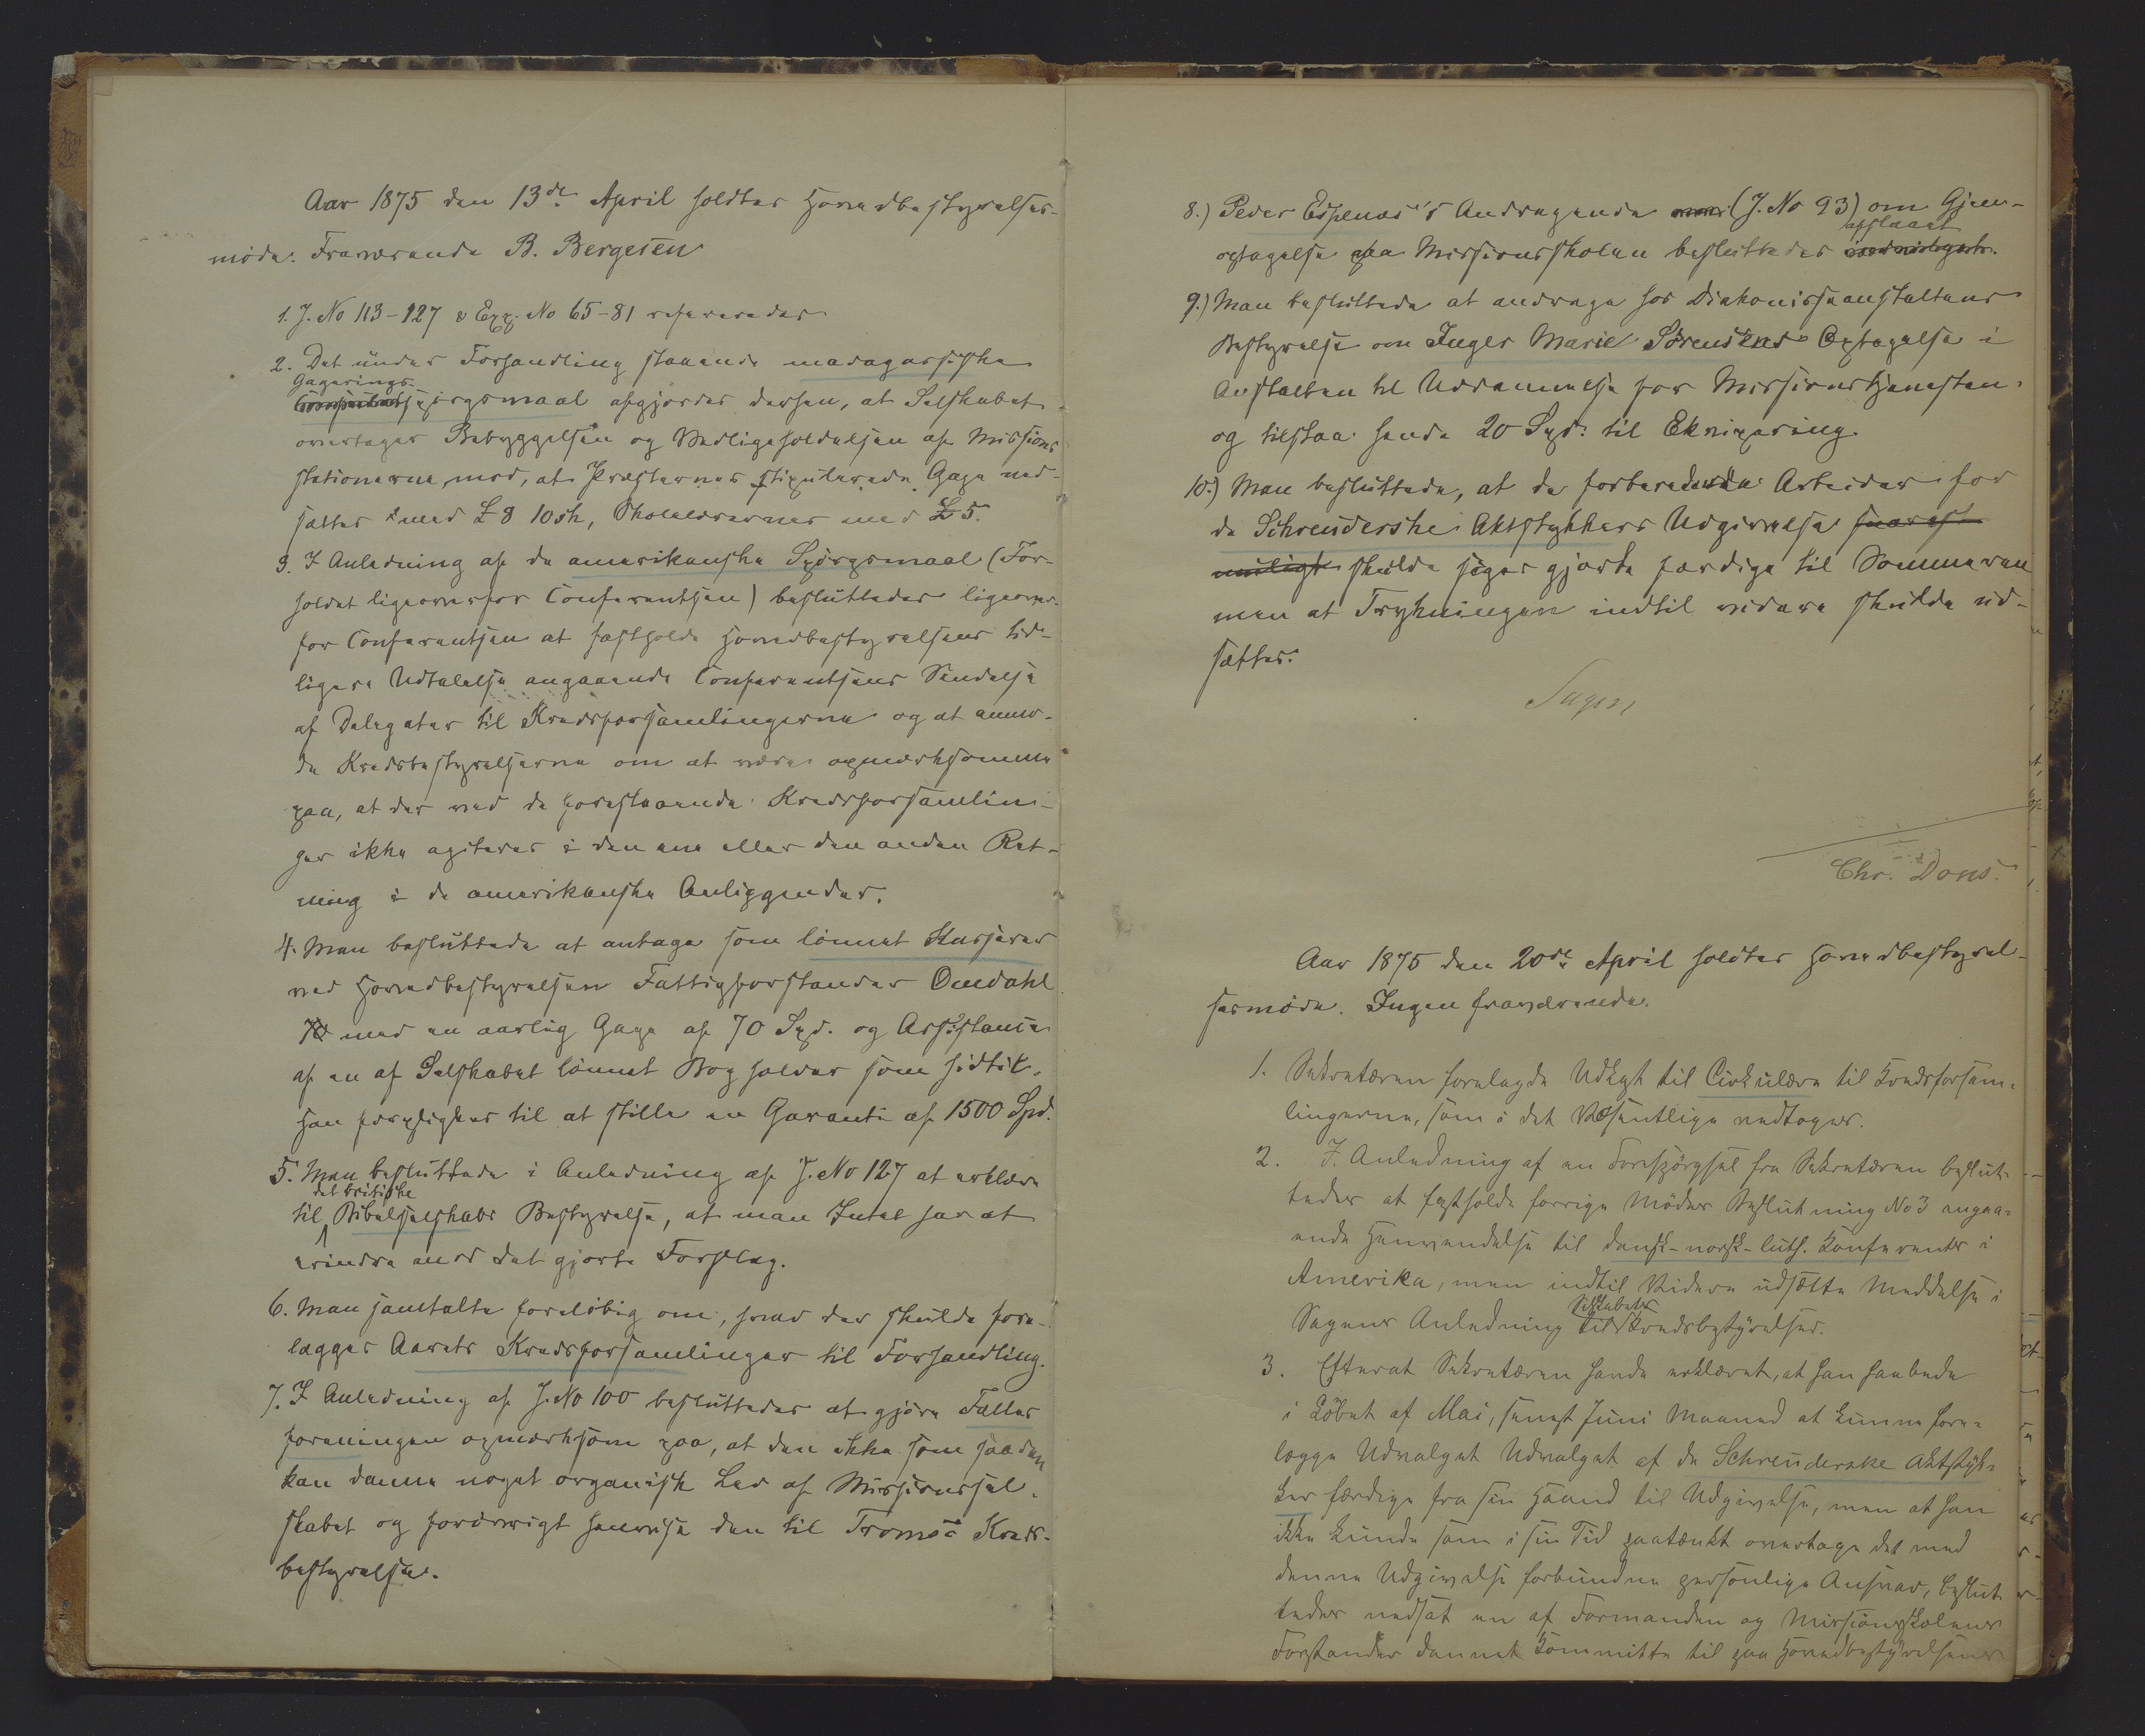 Aar 1875 den 13de April holdtes Hovedbestyrelses-
møde. Fraværende B. Bergesen
1. J. No 113-127 & Exp. No 65-81 refereredes
2. Det under Forhandling staaende madagassiske
Gagerings-
spørgsmaal afgjordes derhen, at Selskabet
overtager Bebyggelsen og Vedligeholdelsen af Missions
stationerne, mod, at Præsternes stipulerede Gage ned-
sættes med £ 8 10sh, Skolelærernes med £ 5.
3. I Anledning af de amerikanske Spørgsmaal (For-
holdet ligeoverfor Conferentsen) besluttedes ligeover-
for Conferentsen at fastholde Hovedbestyrelsens tid-
ligere Udtalelse angaaende Conferentsens Sendelse
af Delegater til Kredsforsamlingerne og at anmo-
de Kredsbestyrelserne om at være opmærksomme
paa, at der ved de forestaaende Kredsforsamlin-
ger ikke agiteres i den ene eller den anden Ret-
ning i de amerikanske Anliggender.
4. Man besluttede at antage som lønnet Kasserer
ved Hovedbestyrelsen Fattigforstander Omdahl
med en aarlig Gage af 70 Spd. og Assistance
af en af Selskabet lønnet Bogholder som hidtil.
Han forpligtes til at stille en Garanti af 1500 Spd.
5. Man besluttede i Anledning af J. No 127 at erklære
det britiske
til Bibelselskabs Bestyrelse, at man Intet har at
erindre mod det gjorte Forslag.
6. Man samtalte foreløbig om, hvad der skulde fore-
lægges Aarets Kredsforsamlinger til Forhandling.
7. I Anledning af J. No 100 besluttedes at gjøre Fælles
foreningen opmærksom paa, at den ikke som saadan
kan danne noget organisk Led af Missionssel-
skabet og forøvrigt henvise den til Tromsø Kreds-
bestyrelse.
8.) Peder Espenæs's Andragende (J. No 93) om Gjen-
afslaaet
optagelse paa Missionsskolen besluttedes
9.) Man besluttede at andrage hos Diakonisseanstaltens
Bestyrelse om Inger Marie Sørensens Optagelse i
Anstalten til Uddannelse for Missionstjenesten
og tilstaa hende 20 Spd. til Ekvipering.
10.) Man besluttede, at de forberedende Arbeider for
de Schreuderske Aktstykkers Udgivelse snarest
muligt skulde søges gjorte færdige til Sommeren
men at Trykningen indtil videre skulde ud-
sættes.
Chr. Dons.
Aar 1875 den 20de April holdtes Hovedbestyrel-
sesmøde. Ingen fraværende.
1. Sekretæren forelagde Udkast til Cirkulære til Kredsforsam-
lingerne, som i det Væsentlige vedtoges.
2. I Anledning af en Forespørgsel fra Sekretæren beslut-
tedes at fastholde forrige Mødes Beslutning No 3 angaa-
ende Henvendelse til dansk-norsk-luth. Konferents i
Amerika, men indtil Videre udsætte Meddelse i
Selskabets
Sagens Anledning til Kredsbestyrelser.
3. Efterat Sekretæren havde erklæret, at han haabede
i Løbet af Mai, senest Juni Maaned at kunne fore-
lægge Udvalget Udvalget af de Schreuderske Aktstyk-
ker færdige fra sin Haand til Udgivelse, men at han
ikke kunde som i sin Tid paatænkt overtage det med
denne Udgivelse forbundne personlige Ansvar, beslut
tedes nedsat en af Formanden og Missionsskolens
Forstander dannet Kommitte til paa Hovedbestyrelsens